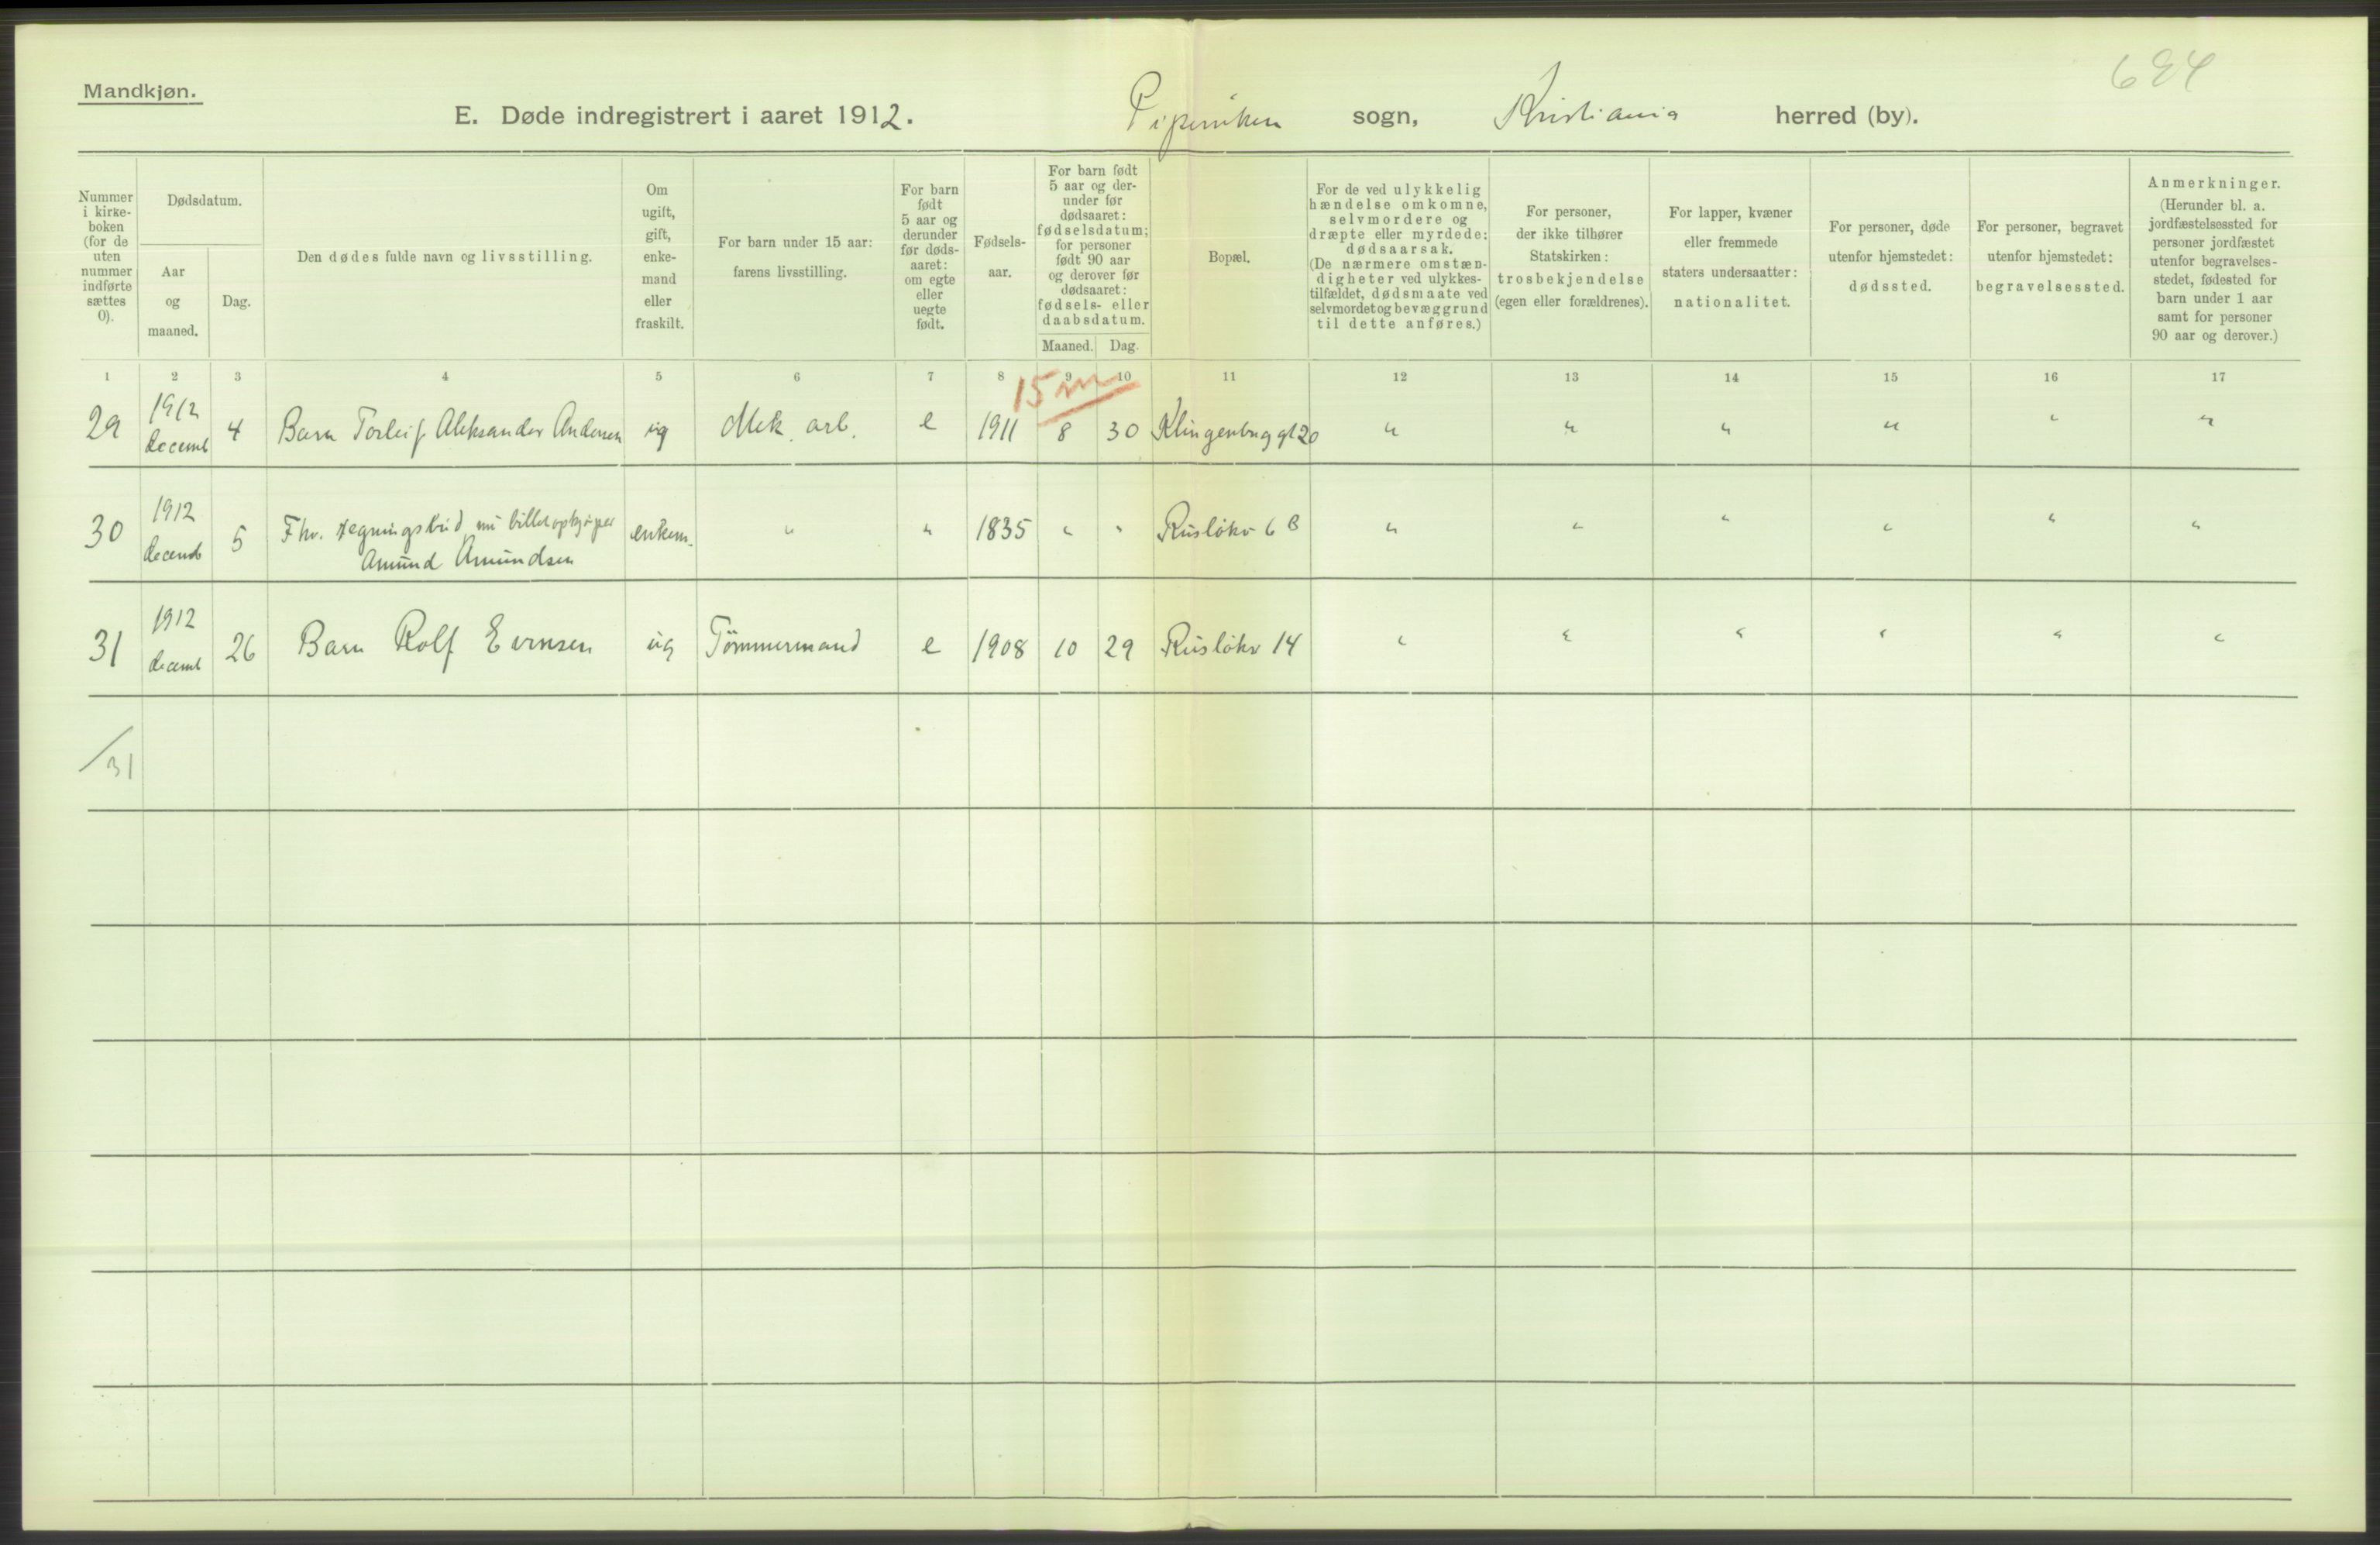 Mandkjøn.
684
E. Døde indregistrert i aaret 1912. Piperviken sogn, Kristiania herred (by).
Nummer i kirke- boken (for de uten nummer indførte sættes 0).
Dødsdatum.
Aar og maaned.
Dag.
Den dødes fulde navn og livsstilling.
Om ugift, gift, enke- mand eller fraskilt.
For barn under 15 aar: farens livsstilling.
For barn født 5 aar og derunder før døds- aaret: om egte eller uegte født.
Fødsels- aar.
For barn født 5 aar og der- under før dødsaaret: fødselsdatum; for personer født 90 aar og derover før dødsaaret: fødsels- eller daabsdatum.
Maaned. Dag.
Bopæl.
For de ved ulykkelig hændelse omkomne, selvmordere og dræpte eller myrdede: dødsaarsak. (De nærmere omstæn- digheter ved ulykkes- tilfældet, dødsmaate ved selvmordet og bevæggrund til dette anføres.)
For personer, der ikke tilhører Statskirken: trosbekjendelse (egen eller forældrenes).
For lapper, kvæner eller fremmede staters undersaatter: nationalitet.
For personer, døde utenfor hjemstedet: dødssted.
For personer, begravet utenfor hjemstedet: begravelsessted.
Anmerkninger. (Herunder bl. a. jordfæstelsessted for personer jordfæstet utenfor begravelses- stedet, fødested for barn under 1 aar samt for personer 90 aar og derover.)
1 2 3 4 5 6 7 8 9 10 11 12 13 14 15 16 17
15 m
29 1912 decemb 4 Barn Torleif Aleksander Andersen ug Mek. arb. e 1911 8 30 Klingenbug gt 20 " " " " " "
30 1912 decemb 5 Fhv. tegningsbud nu billetopkjøper enkem. " " 1835 " " Rusløkv 6 B " " " " " "
Amund Amundsen
31 1912 decemb 26 Barn Rolf Evensen ug Tömmermand e 1908 10 29 Rusløkv 14 " " " " " "
/31